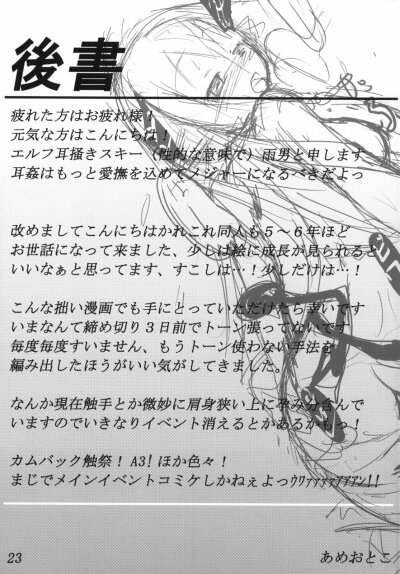 後書
疲れた方はお疲れ様！
元気な方はこんにちは！
エルフ耳掻きスキー（性的な意味で）雨男と申します
耳姦はもっと愛撫を込めてメジャーになるべきだよっ
改めましてこんにちはかれこれ同人も５～６年ほど
お世話になって来ました、少しは絵に成長が見られると
いいなぁと思ってます、すこしは…！少しだけは…！
こんな拙い漫画でも手にとっていただけたら幸いです
いまなんて締め切り３日前でトーン張ってないです
毎度毎度すいません、もうトーン使わない手法を
編み出したほうがいい気がしてきました。
なんか現在触手とか微妙に肩身狭い上に孕み分含んで
いますのでいきなりイベント消えるとかあるかもっ！
カムバック触祭！A3!ほか色々！
まじでメインイベントコミケしかねぇよっｳﾜｧｧｧｧｱｱｱﾝ!!
23
あめおとこ